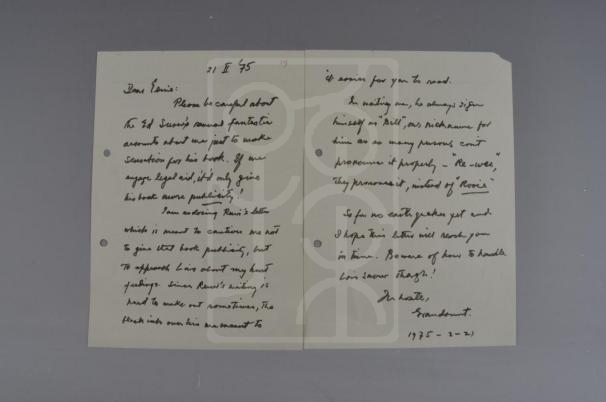 21 II '75
Dear Ernie:
Please be careful about
the Ed Snow's sexual fantastic
accounts about me just to make
sensation for his book. If we
engage legal aid, it'd only give
his book more publicity!
I am enclosing Rewi's letter
which is meant to caution me not
to give that book publicity, but
to approach Lois about my hurt
feelings. Since Rewi's writing is
hard to make out sometimes, the
black inks over his are meant to
it easier for you to read.
In writing me, he always signs
himself as "Bill", our nickname for
him as so many persons can't
pronounce it properly - "Re-wee,"
they pronounce it, instead of "Rooie"
So far no earthquakes yet and
I hope this letter will reach you
in time. Beware of how to handle
Lois Snow though!
In haste,
Grandaunt.
1975-2-21